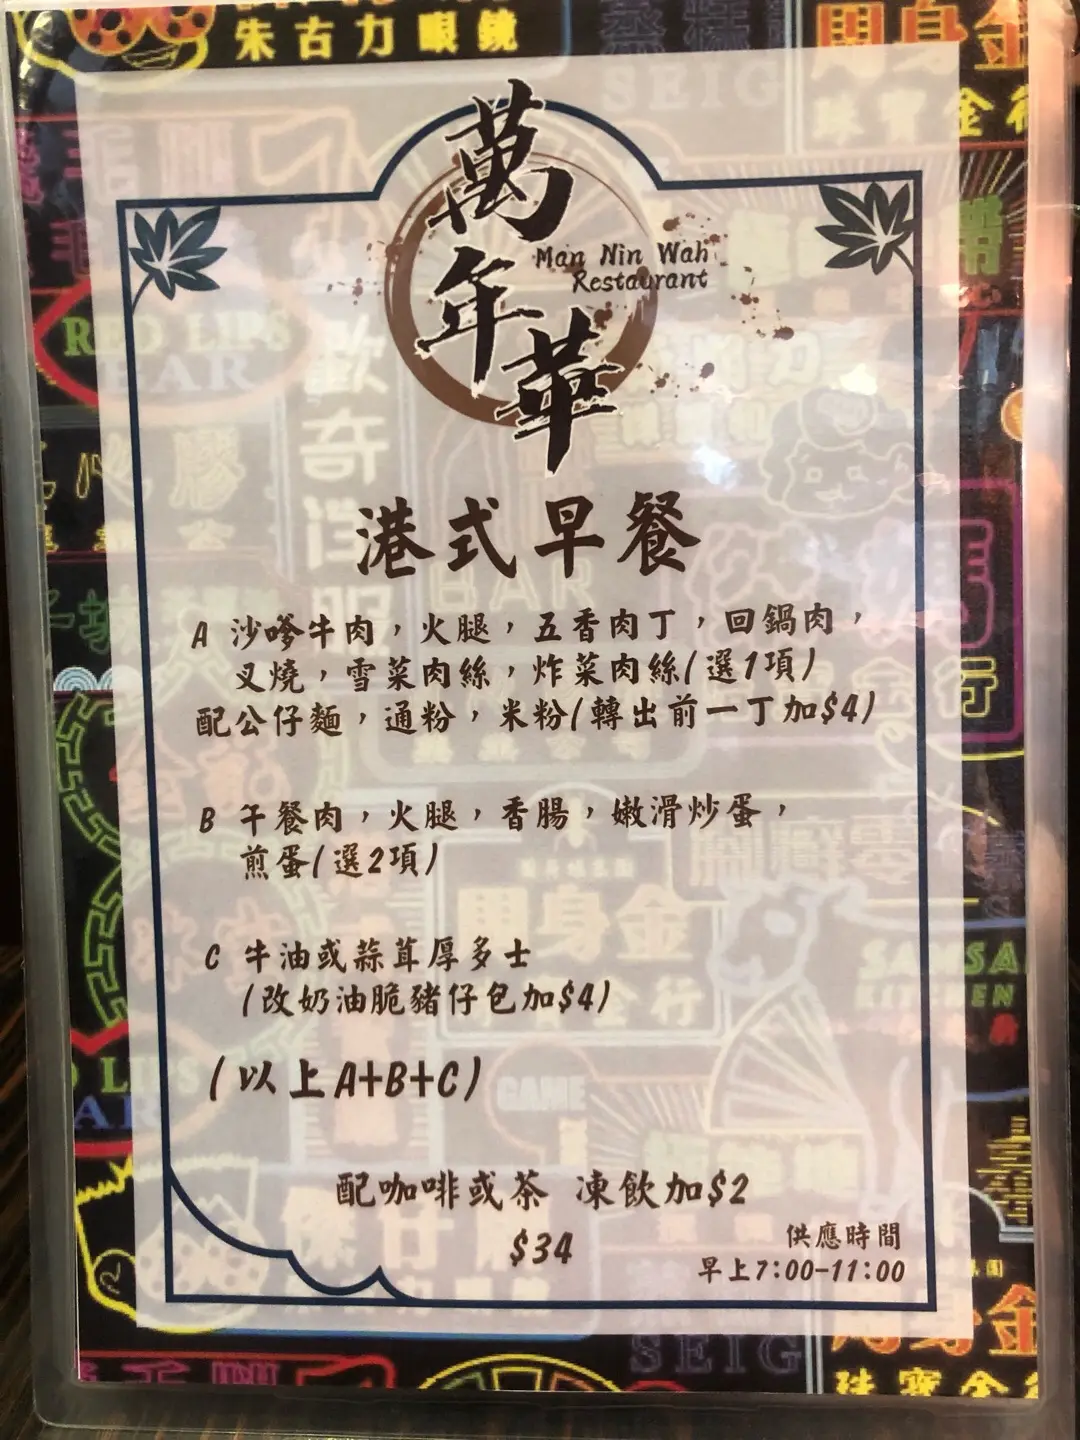 朱古力眼鏡
周身金
珠寶金行
SEIG
萬年華
Man Nin Wah
Restaurant
RED LIPS
BAR
港式早餐
BAR
A 沙嗲牛肉，火腿，五香肉丁，回鍋肉，
叉燒，雪菜肉絲，炸菜肉絲(選1項)
配公仔麵，通粉，米粉(轉出前一丁加$4)
B 午餐肉，火腿，香腸，嫩滑炒蛋，
煎蛋(選2項)
周身金
C 牛油或蒜茸厚多士
(改奶油脆豬仔包加$4)
(以上A+B+C)
GAME
配咖啡或茶 凍飲加$2
$34
供應時間
早上7:00-11:00
SEIG
周身金
珠寶金行